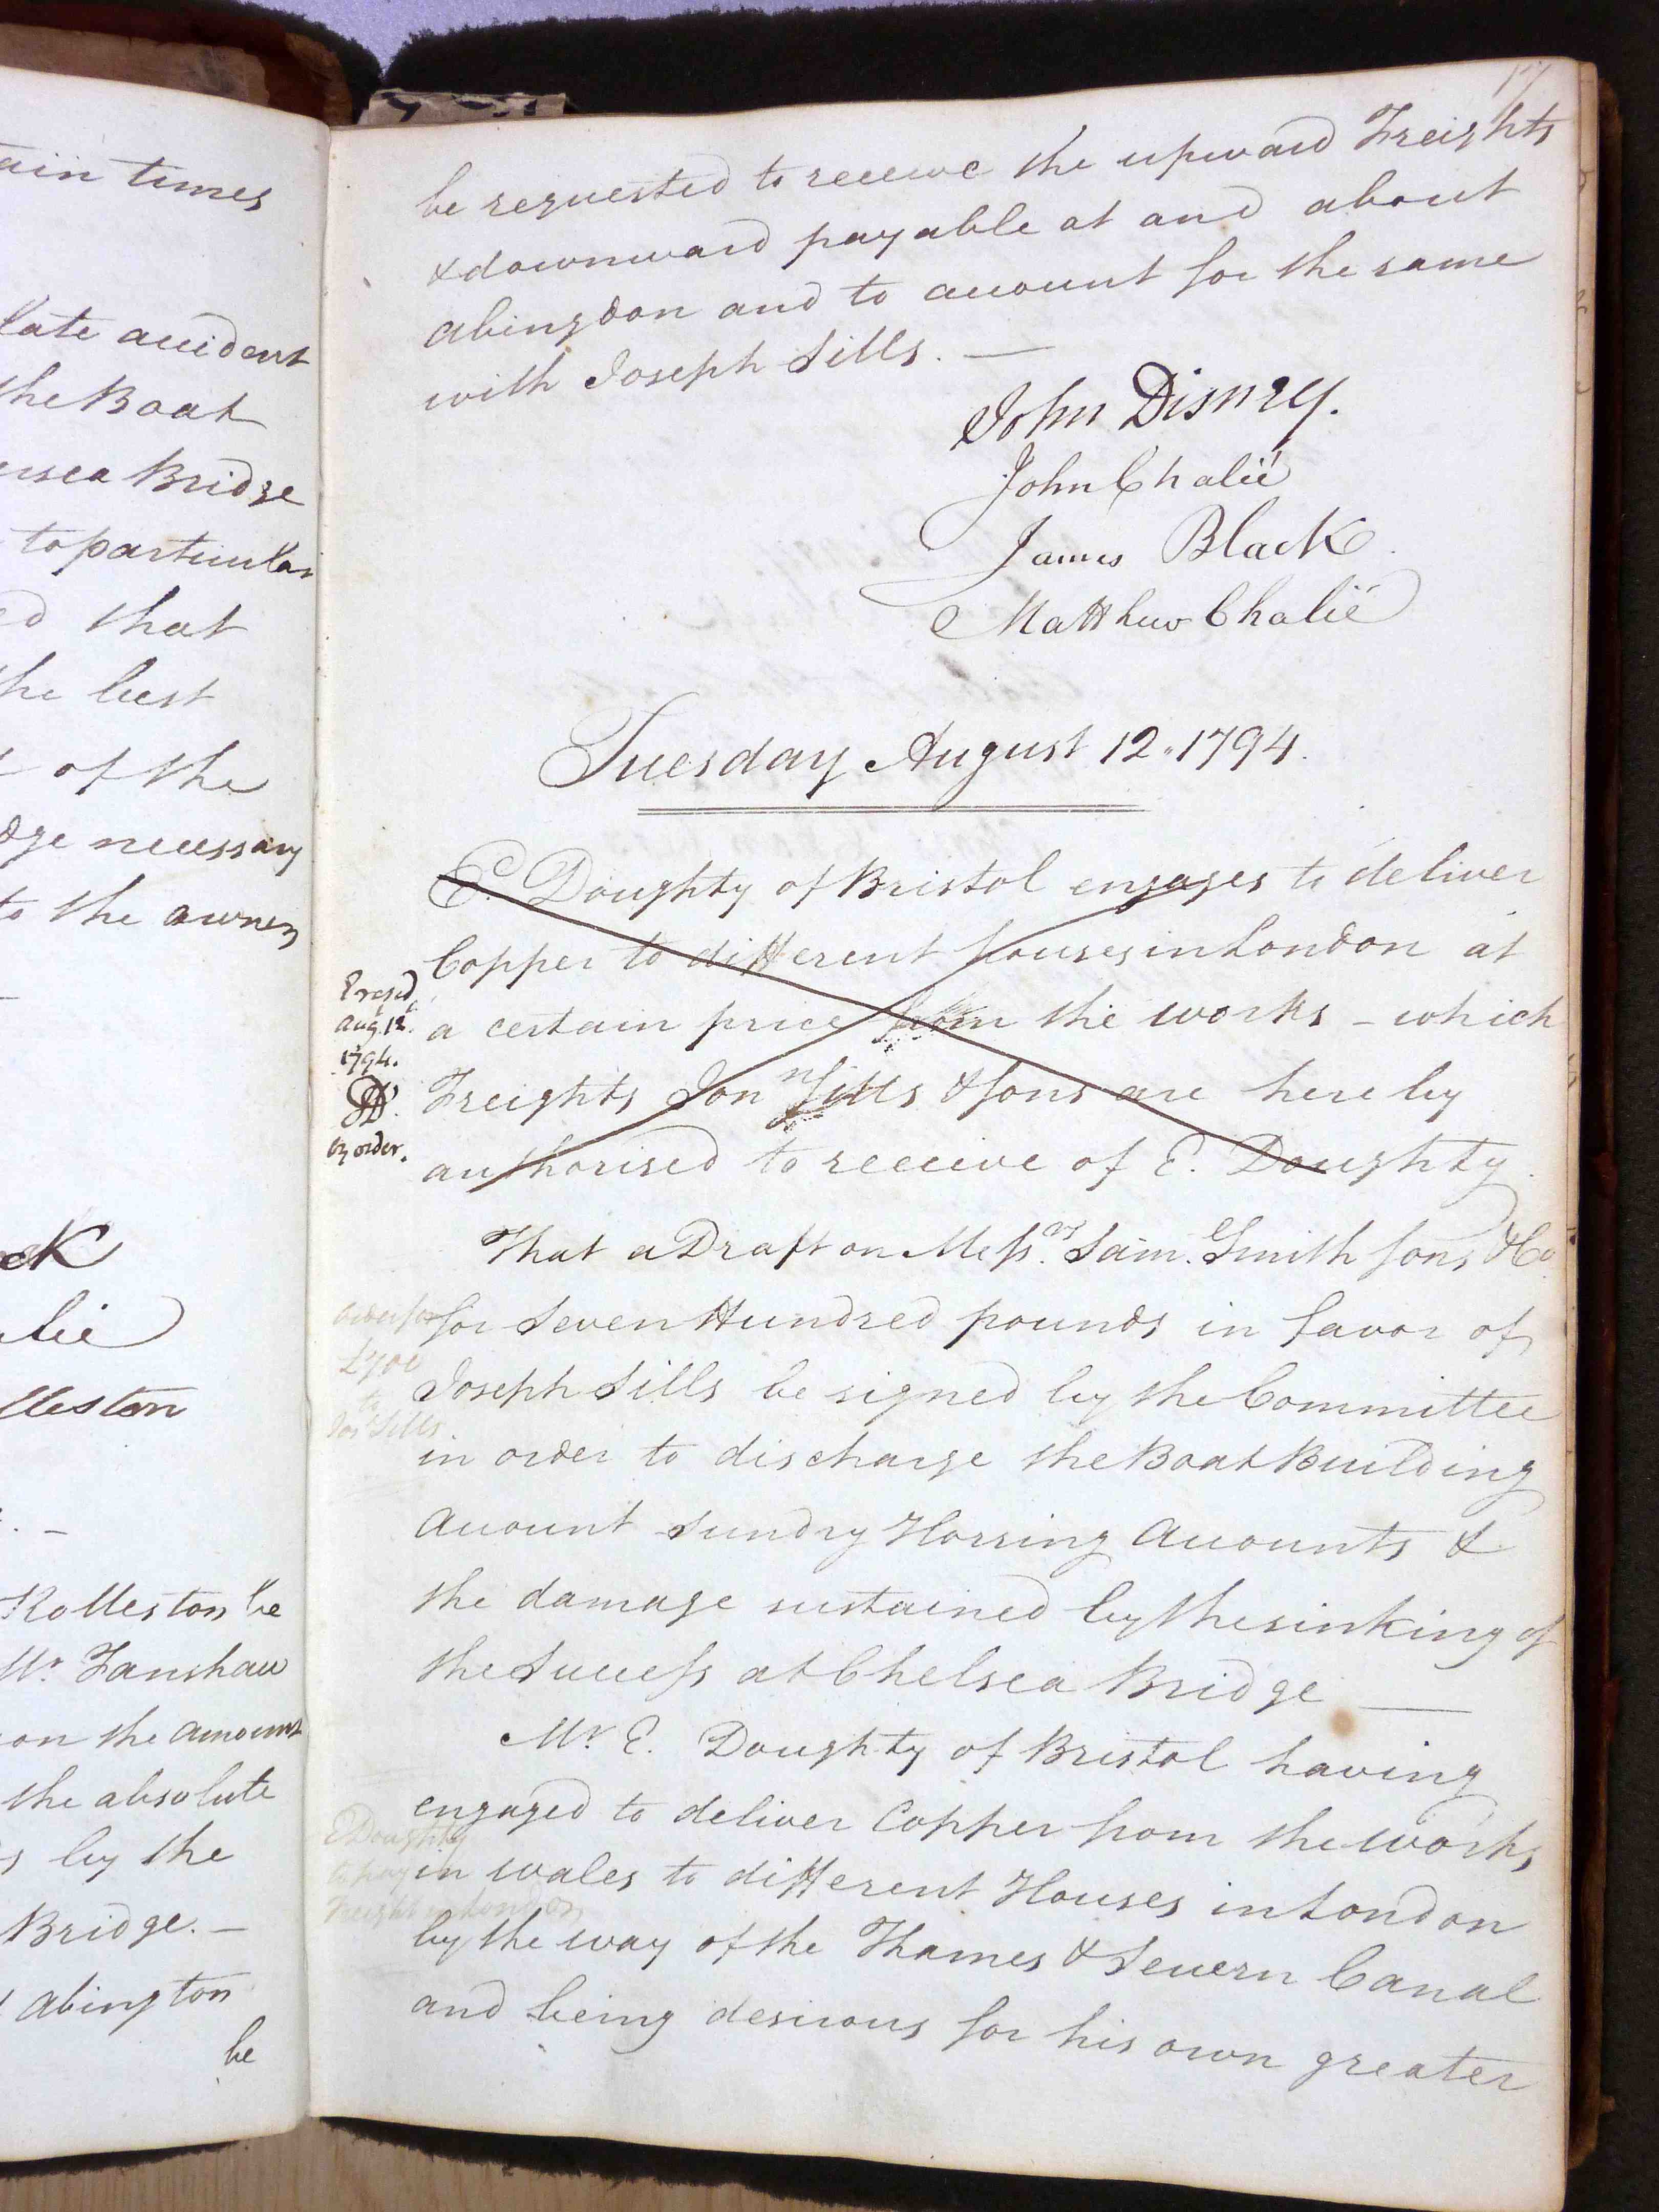 ain times
late accident
the Boat
ersea Bridge
to particular
ed that
the best
of the
dge necessary
to the owners
ck
lie
lleston
Rolleston be
Mr. Fanshaw
on the amount
the absolute
s by the
Bridge. —
Abington
be
17
be requested to receive the upward Freights
& downward payable at and about
Abingdon and to account for the same
with Joseph Sills. —
John Disney.
John Chalié
James Black
Matthew Chalié
Tuesday August 12. 1794.
E. Doughty of Bristol engages to deliver
Copper to different houses in London at
a certain price from the works – which
Freights Jonn Sills & Sons are hereby
authorised to receive of E. Doughty.
Erased
Aug. 12.
1794.
by order.
That a Draft on Messrs. Saml. Smith Sons & Co
for Seven Hundred pounds in favor of
Joseph Sills be signed by the Committee
in order to discharge the Boat Building
Account Sundry Horsing Accounts &
the damage sustained by the sinking of
the Success at Chelsea Bridge —
Order for
£700
to
Jos Sills
Mr E. Doughty of Bristol having
engaged to deliver Copper from the works
in Wales to different Houses in London
by the way of the Thames & Severn Canal
and being desirous for his own greater
E Doughty
to pay
Freight in London